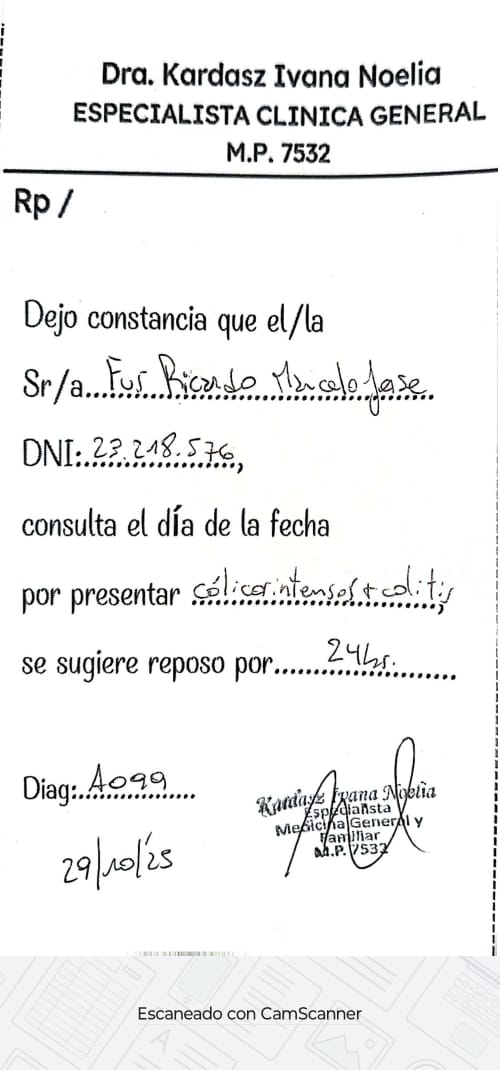 Dra. Kardasz Ivana Noelia
ESPECIALISTA CLINICA GENERAL
M.P. 7532
Rp /
Dejo constancia que el/la
Sr/a... Fus Ricardo Marcelo Jose
DNI: 23.218.576,
consulta el día de la fecha
por presentar cólicos intensos + colitis,
se sugiere reposo por..... 24hs.
Diag: A099
29/10/25
Kardasz Ivana Noelia
Especialista
Medicina General y
Familiar
M.P. 7532
Escaneado con CamScanner